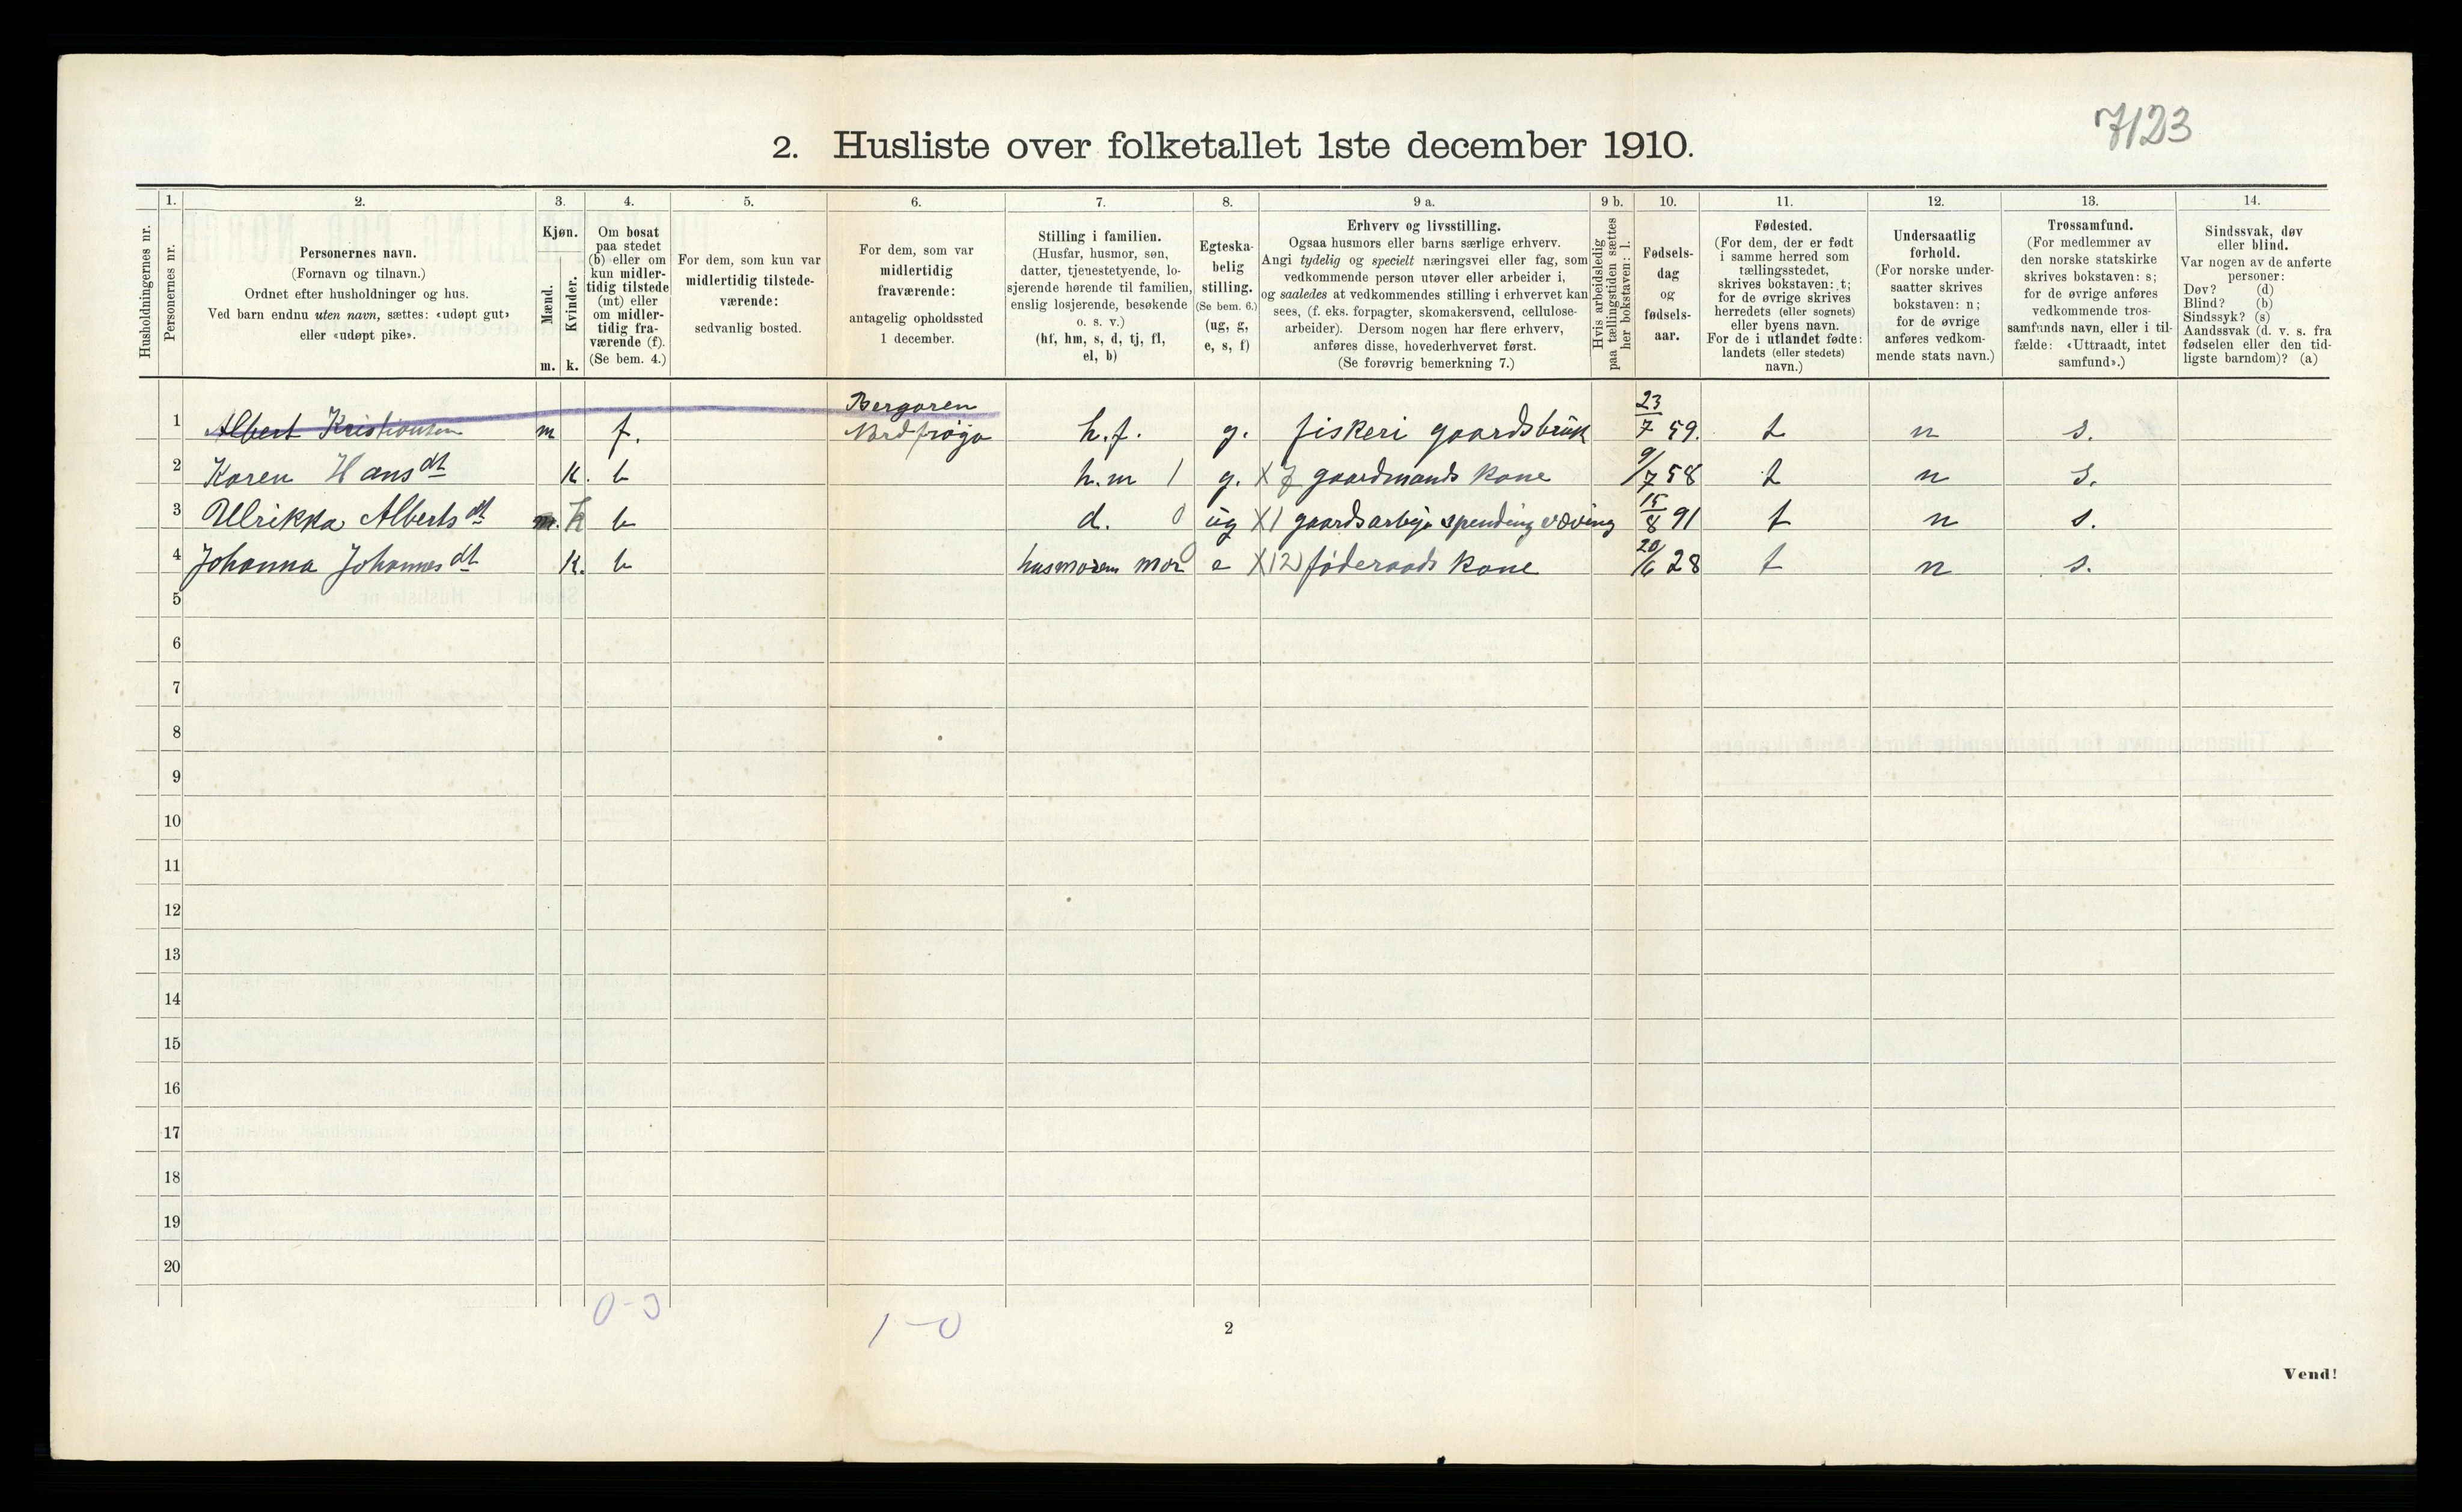 7123
2. Husliste over folketallet 1ste december 1910.
Husholdningernes nr.
1.
Personernes nr.
2.
Personernes navn.
(Fornavn og tilnavn.)
Ordnet efter husholdninger og hus.
Ved barn endnu uten navn, sættes: «udøpt gut»
eller «udøpt pike».
3.
Kjøn.
Mænd.
m.
Kvinder.
k.
4.
Om bosat
paa stedet
(b) eller om
kun midler-
tidig tilstede
(mt) eller
om midler-
tidig fra-
værende (f).
(Se bem. 4.)
5.
For dem, som kun var
midlertidig tilstede-
værende:
sedvanlig bosted.
6.
For dem, som var
midlertidig
fraværende:
antagelig opholdssted
1 december.
7.
Stilling i familien.
(Husfar, husmor, søn,
datter, tjenestetyende, lo-
sjerende hørende til familien,
enslig losjerende, besøkende
o. s. v.)
(hf, hm, s, d, tj, fl,
el, b)
8.
Egteska-
belig
stilling.
(Se bem. 6.)
(ug, g,
e, s, f)
9 a.
Erhverv og livsstilling.
Ogsaa husmors eller barns særlige erhverv.
Angi tydelig og specielt næringsvei eller fag, som
vedkommende person utøver eller arbeider i,
og saaledes at vedkommendes stilling i erhvervet kan
sees, (f. eks. forpagter, skomakersvend, cellulose-
arbeider). Dersom nogen har flere erhverv,
anføres disse, hovederhvervet først.
(Se forøvrig bemerkning 7.)
9 b.
Hvis arbeidsledig
paa tællingstiden sættes
her bokstaven: l.
10.
Fødsels-
dag
og
fødsels-
aar.
11.
Fødested.
(For dem, der er født
i samme herred som
tællingsstedet,
skrives bokstaven: t;
for de øvrige skrives
herredets (eller sognets)
eller byens navn.
For de i utlandet fødte:
landets (eller stedets)
navn.)
12.
Undersaatlig
forhold.
(For norske under-
saatter skrives
bokstaven: n;
for de øvrige
anføres vedkom-
mende stats navn.)
13.
Trossamfund.
(For medlemmer av
den norske statskirke
skrives bokstaven: s;
for de øvrige anføres
vedkommende tros-
samfunds navn, eller i til-
fælde: «Uttraadt, intet
samfund».)
14.
Sindssvak, døv
eller blind.
Var nogen av de anførte
personer:
Døv? (d)
Blind? (b)
Sindssyk? (s)
Aandssvak (d. v. s. fra
fødselen eller den tid-
ligste barndom)? (a)
1 Albert Kristiansen m f. Bergøren Nordfrøya h.f. g. fiskeri gaardsbruk 23/7 59. t n s.
2 Karen Hansdt K. b h.m 1 g. X 7 gaardmands kone 9/7 58 t n s.
3 Ulrikka Albertsdt m. k b d. 0 ug X 1 gaardsarbeje spending væving 15/8 91 t n s.
4 Johanna Johannesdt K. b husmoren mor 0 e X 12) føderaads kone 20/6 28 t n s.
5
6
7
8
9
10
11
12
13
14
15
16
17
18
19
20
0-3
1-0
2
Vend!